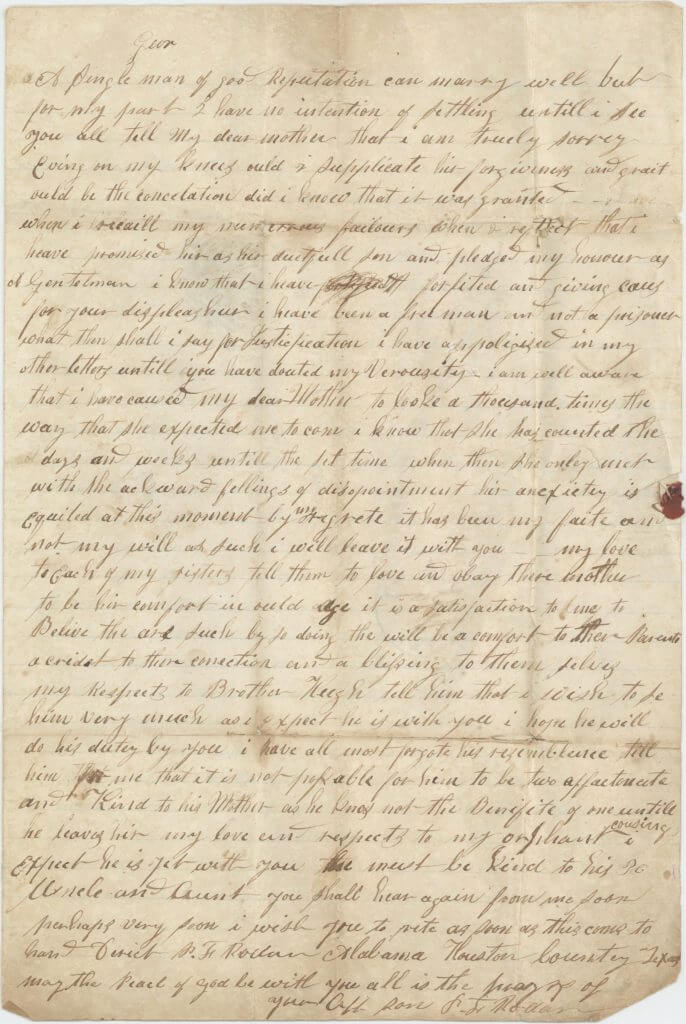 your
A Single man of good Reputation can marry well but
for my part I have no intention of settling untill i see
you all tell My dear mother that i am truely sorrey
Eving on my knees ould i supplicate hir forgiveness and grait
ould be the concelation did i know that it was granted
when i recaill my failours when i reflect that i
heave promised hir as her deutfull son and pledged my honour as
A Gentelman i know that i heave forfited and giving caus
for your displeashur i heave been a free man and not a prisoner
what then shall i say for Justification i have appoligised in my
other letters untill you have douted my Verousity - i am well aware
that i have caused my dear Mother to looke a thousand times the
way that she expected me to com i know that she has counted the
days and weeks untill the set time when then she only met
with the ackward fellings of disopointment hir anexietey is
Equiled at this moment by my regrete it has been my faite and
not my will as such i will leave it with you - my love
to Each of my sisters tell them to love and obay there mother
to be hir comfort in ould age it is a satisfaction to me to
Belive the are such by so doing the will be a comfort to ther Parents
a cridet to there conection and a blissing to them selves
my Respects to Brother Hugh tell him that i wish to se
him very much as i expect he is with you i hope he will
do his dutey by you i have all most forgote his resemblence tell
him me that it is not posable for him to be two affactonate
and Kind to his Mother as he knos not the Benifite of one untill
he leaves hir my love and respects to my orphant cousing i
Expect he is yet with you he must be kind to his
Uncle and Aunt you shall hear again from me soon
perhaps very soon i wish you to rite as soon as this coms to
hand Direct P. F. Rodan Alabama Houston Countey Texas
may the Peace of god be with you all is the prayrs of
your Aff son P. F. Rodan